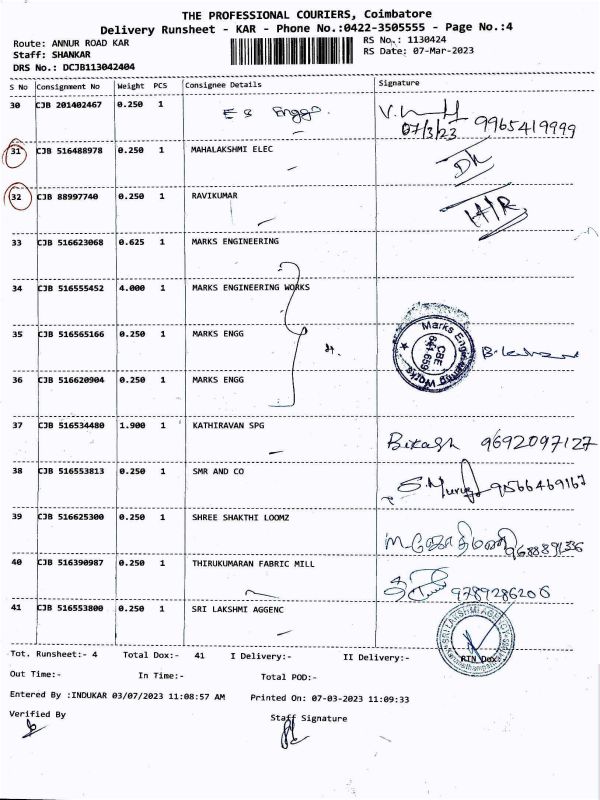 THE PROFESSIONAL COURIERS, Coimbatore
Delivery Runsheet - KAR - Phone No.:0422-3505555 - Page No.:4
Route: ANNUR ROAD KAR RS No.: 1130424
Staff: SHANKAR RS Date: 07-Mar-2023
DRS No.: DCJB113042404
S No Consignment No Weight PCS Consignee Details Signature
30 CJB 201402467 0.250 1 E S Enggs. 07/3/23 9965419999
31 CJB 516488978 0.250 1 MAHALAKSHMI ELEC DL
32 CJB 88997740 0.250 1 RAVIKUMAR H/R
33 CJB 516623068 0.625 1 MARKS ENGINEERING
34 CJB 516555452 4.000 1 MARKS ENGINEERING WORKS
35 CJB 516565166 0.250 1 MARKS ENGG 4. Marks Engineering Works CBE 641 659
36 CJB 516620904 0.250 1 MARKS ENGG
37 CJB 516534480 1.900 1 KATHIRAVAN SPG Bikash 9692097127
38 CJB 516553813 0.250 1 SMR AND CO 9566469167
39 CJB 516625300 0.250 1 SHREE SHAKTHI LOOMZ
40 CJB 516390987 0.250 1 THIRUKUMARAN FABRIC MILL 9789286206
41 CJB 516553800 0.250 1 SRI LAKSHMI AGGENC SRI LAKSHMI AGENCY
Tot. Runsheet:- 4 Total Dox:- 41 I Delivery:- II Delivery:- RTN Dox:-
Out Time:- In Time:- Total POD:-
Entered By :INDUKAR 03/07/2023 11:08:57 AM Printed On: 07-03-2023 11:09:33
Verified By Staff Signature